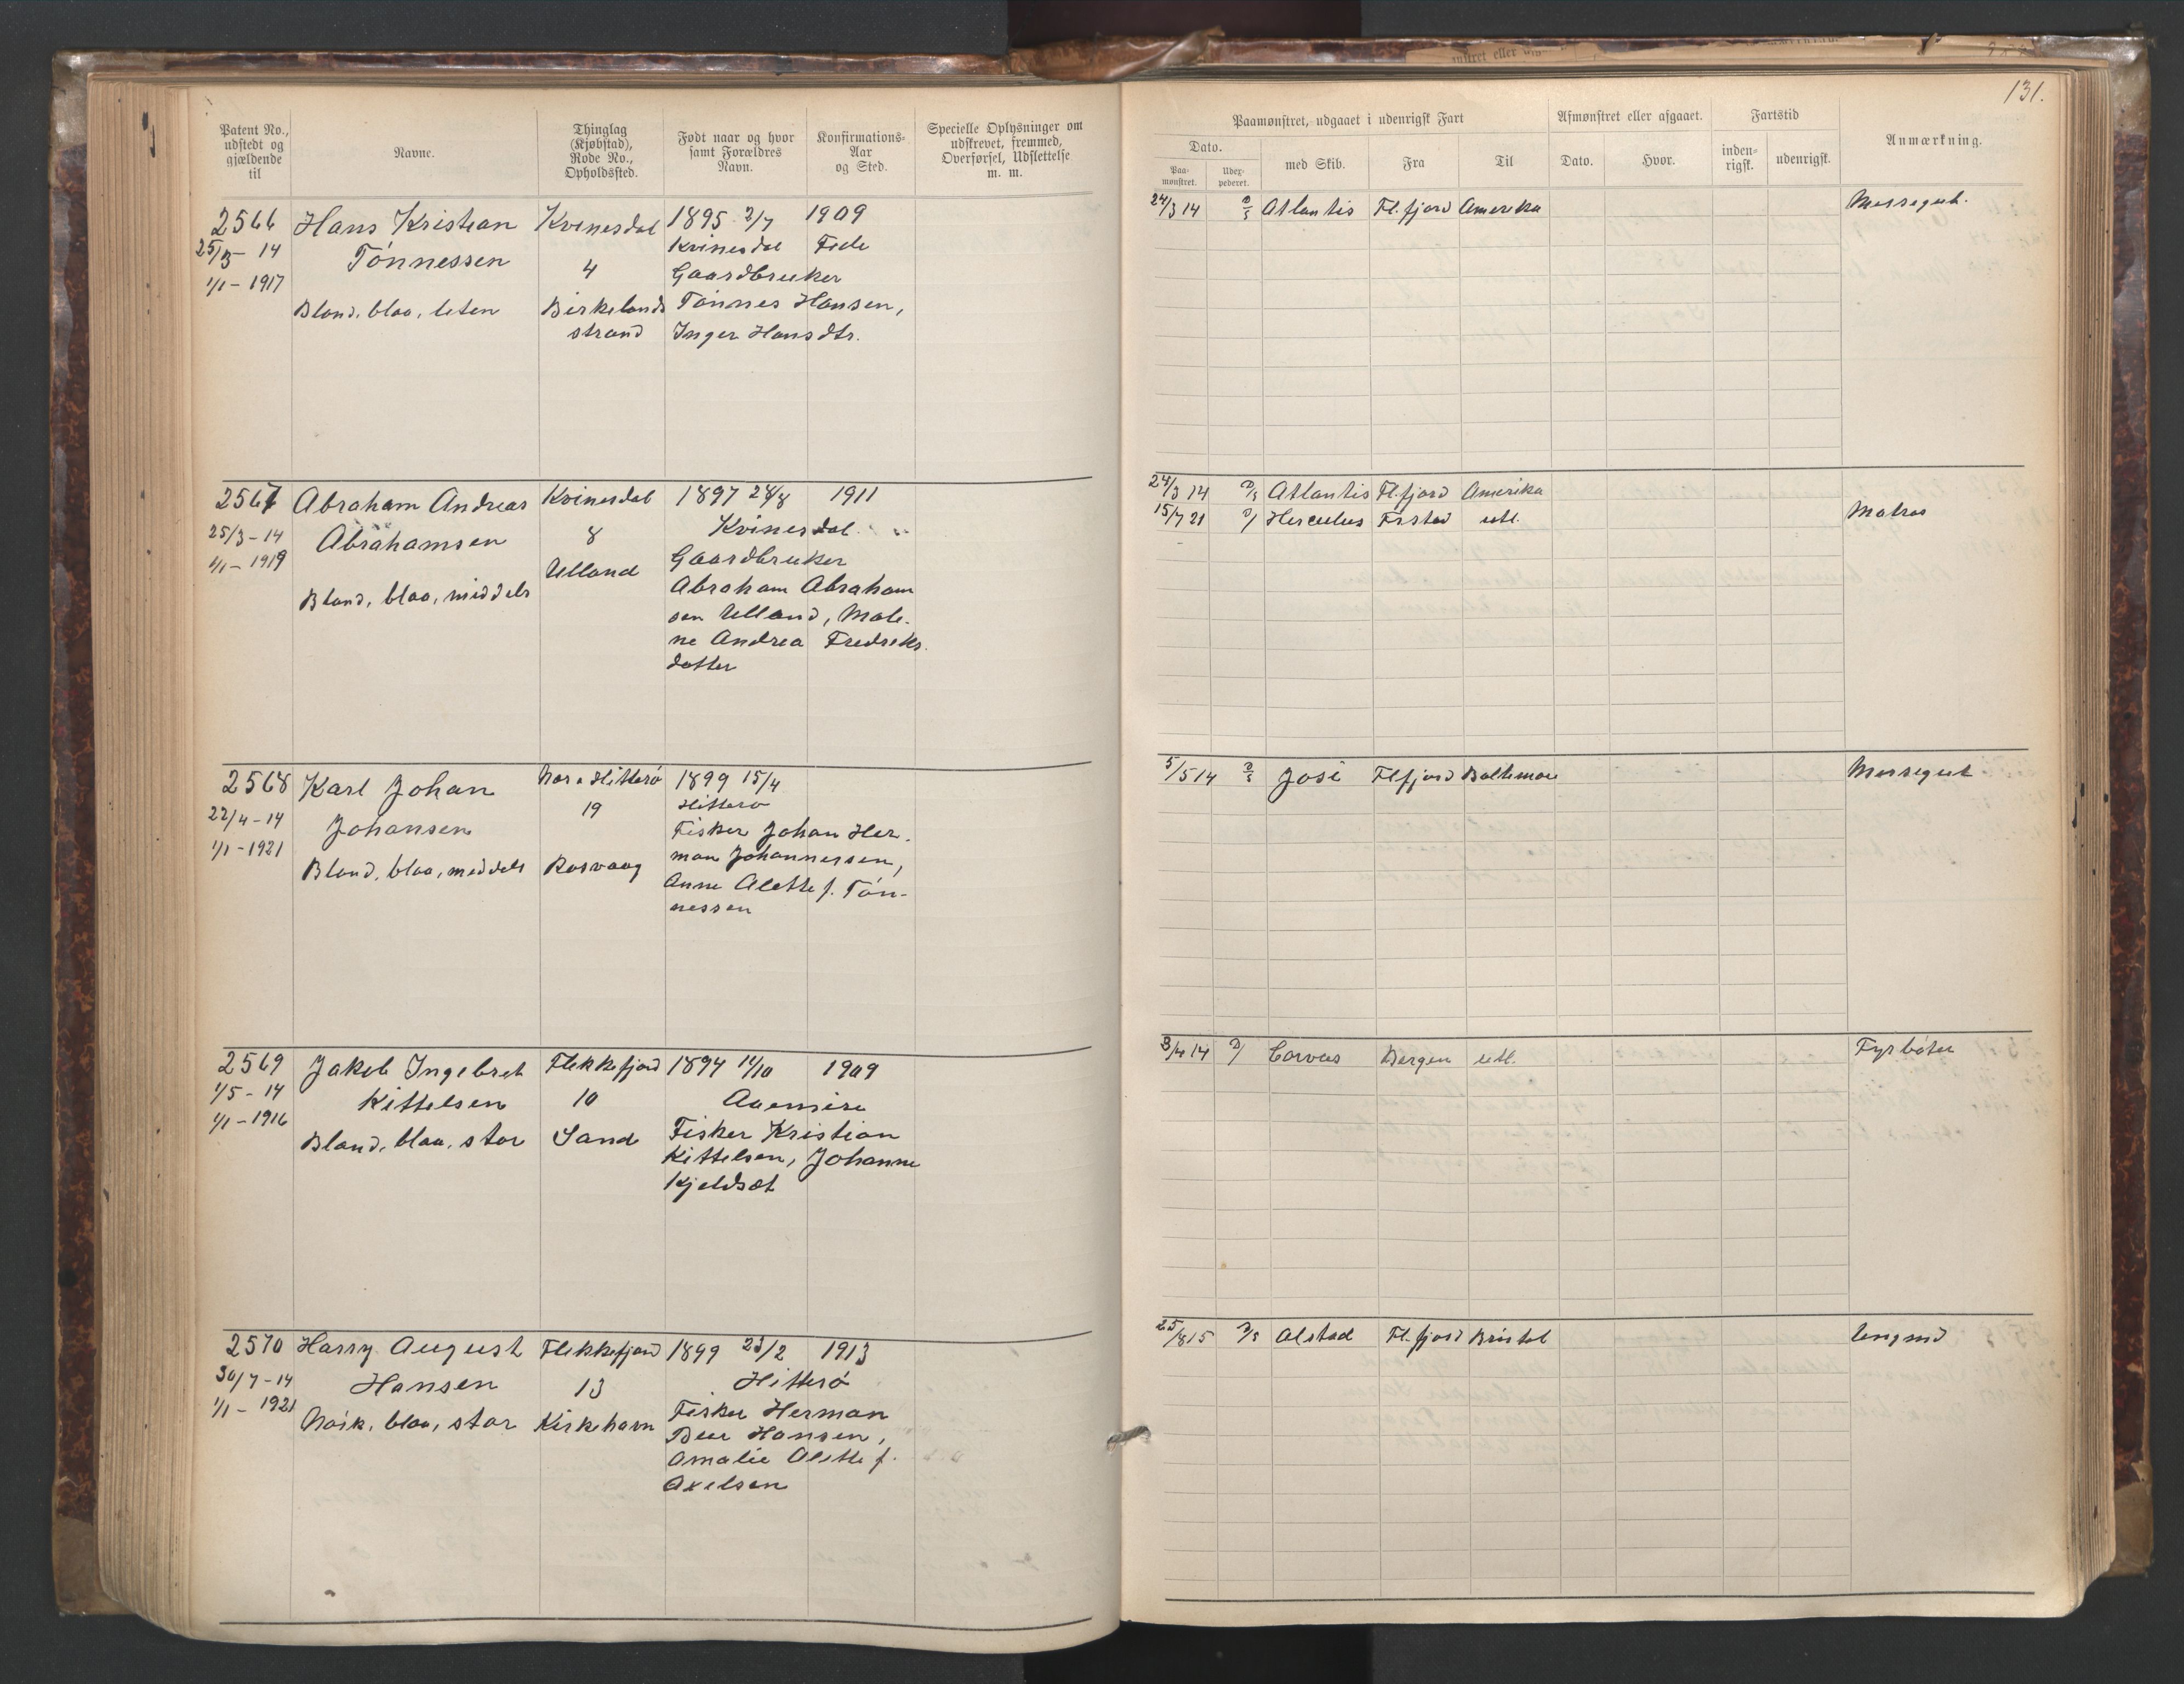 131.
Patent No., udstedt og gjældende til
Navne.
Thinglag (Kjøbstad), Rode No., Opholdssted.
Født naar og hvor samt Forældres Navn.
Konfirmations-Aar og Sted.
Specielle Oplysninger om udskrevet, fremmed, Overførsel, Udslettelse m. m.
Paamønstret, udgaaet i udenrigsk Fart
Dato.
Paa-mønstret.
Udex-pederet.
med Skib.
Fra
Til
Afmønstret eller afgaaet.
Dato.
Hvor.
Fartstid
inden-rigsk.
udenrigsk.
Anmærkning.
2566 Hans Kristian Kvinesdal 1895 2/7 1909
25/3 - 14 Tønnessen 4 Kvinesdal Fede
1/1 - 1917 Gaardbruker
Blond, blaa, liten Birkelands Tønnes Hansen,
strand Inger Hansdtr.
24/3 14 D/S Atlantis Fl.fjord Amerika Messegut.
2567 Abraham Andreas Kvinesdal 1897 28/8 1911
25/3 - 14 Abrahamsen 8 Kvinesdal
1/1 - 1919 Ulland Gaardbruker
Blond, blaa, middels Abraham Abraham
sen Ulland, Male-
ne Andrea Fredriks-
datter
24/3 14 D/S Atlantis Fl.fjord Amerika
15/7 21 D/ Herculus Frstad utl. Matros
2568 Karl Johan Nes o Hitterø 1899 15/4
22/4 - 14 Johansen 19 Hitterø
1/1 - 1921 Fisker Johan Her-
Blond, blaa, middels Rosvaag man Johannessen,
Anne Alette f. Tøn-
nessen
5/5 14 D/S Josi Flfjord Baltimore Messegut
2569 Jakob Ingebret Flekkefjord 1894 11/10 1909
1/5 - 14 Kittelsen 10
1/1 - 1916 Fisker Kristian
Blond, blaa, stor Sand Kittelsen, Johanne
Kjeldsøt
3/4 14 D/ Corvus Bergen utl. Fyrbøter
2570 Harry August Flekkefjord 1899 23/2 1913
30/7 - 14 Hansen 13 Hitterø
1/1 - 1921 Fisker Herman
Mørk, blaa, stor Kirkehavn Beer Hansen,
Amalie Alette f.
Axelsen
25/8 15 D/S Alstad Fl.fjord Bristol Ungmd